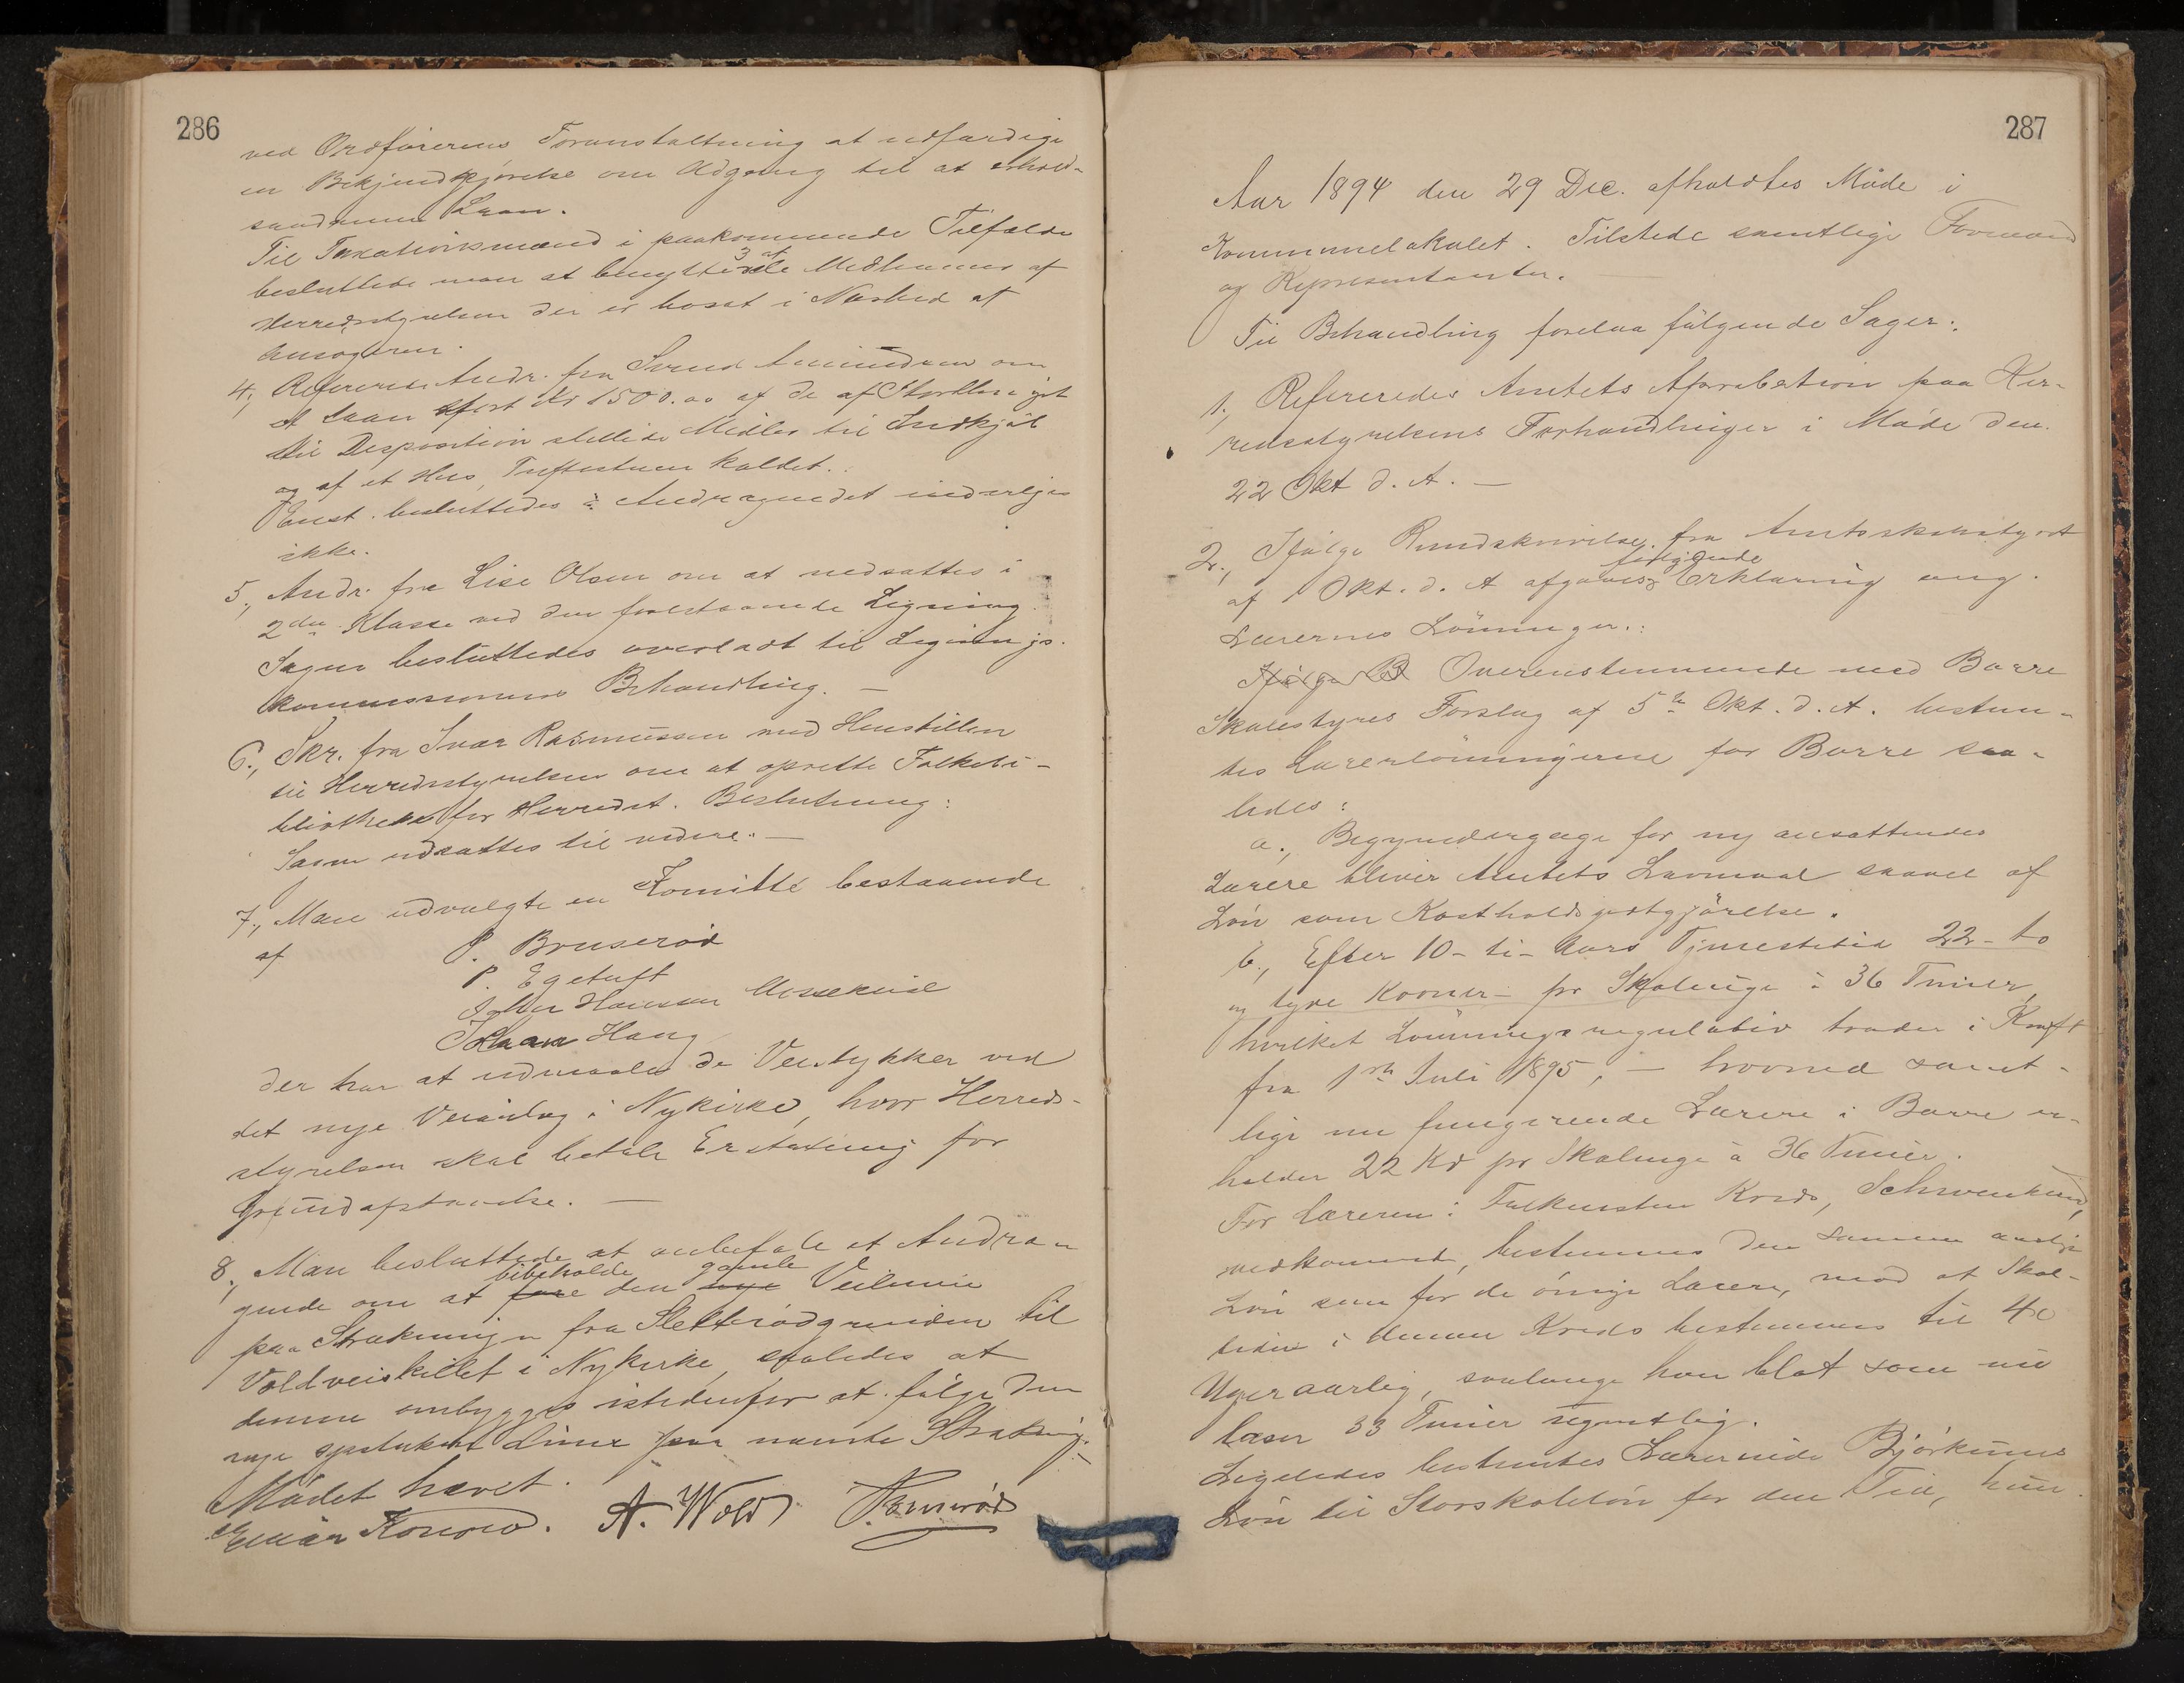 286
ved Ordførerens Foranstaltning at udfærdige
en Bekjendtgjørelse om Adgang til at erhold-
saadanne Laan.
Til Taxationsmænd i paakommende Tilfælde
besluttede man at benytte 3 af Medlemmer af
Herredsstyrelsen der er bosat i Nærhed af
Ansøgeren.
4, Refereredes Andr. fra Svend Amundsen om
et Laan stort Kr 1500.00 af de af Storthinget
til Disposition stillede Midler til Indkjøb
og af et Hus, Tuftestuen kaldet.
Enst. besluttedes: Andragendet indvilges
ikke.
5, Andr. fra Lise Olsen om at nedsættes i
2den Klasse ved den forestaaende Ligning
Sagen besluttedes overladt til Lignings-
kommissionens Behandling. —
6., Skr. fra Ivar Rasmussen med Henstillen
til Herredsstyrelsen om at oprette Folkebi-
bliothek for Herredet. Beslutning:
Sagen udsættes til videre. —
7, Man udvalgte en Komitté bestaaende
af P. Bruserød
P. Egetuft
Hansen
Johan Haug
der har at udmaale de Veistykker ved
det nye Veianlæg i Nykirke, hvor Herreds-
styrelsen skal betale Erstatning for
Grundafstaaelse. —
8, Man besluttede at anbefale et Andra-
bibeholde gamle
gende om at føre den nye Veilinie
paa Strækningen fra Sletterødgrinden til
Voldveiskillet i Nykirke, saaledes at
denne ombygges istedenfor at følge den
nye opstukne Linie paa nævnte Strækning.
Mødet hævet.
A. Wold P. Bruserød
287
Aar 1894 den 29 Dec. afholdtes Møde i
Kommunelokalet. Tilstede samtlige Formænd
og Repræsentanter. —
Til Behandling forelaa følgende Sager:
1, Refereredes Amtets Aprobation paa Her-
redsstyrelsens Forhandlinger i Møde den
22 Okt d. A. —
2., Ifølge Rundskrivelse fra Amtsskolestyret
følgende
af 1 Okt. d. A afgaves Erklæring ang.
Lærernes Lønninger.:
Ifølge B Overensstemmende med Borre
Skolestyres Forslag af 5te Okt. d. A. bestem-
tes Lærerlønningerne for Borre saa-
ledes:
a., Begyndergage for ny ansættendes
Lærere bliver Amtets Lavmaal saavel af
Løn som Kostholdsgodtgjørelse.
b., Efter 10- ti- Aars Tjenestetid 22- to
og tyve Kroner- pr Skoleuge à 36 Timer,
hvilket Lønningsregulativ træder i Kraft
fra 1ste Juli 1895, — hvorved samt-
lige nu fungerende Lærere i Borre er-
holder 22 Kr pr Skoleuge à 36 Timer.
For Læreren i Falkensten Kreds, Schwenkund,
vedkommende, bestemmes den samme aarlige
Løn som for de øvrige Lærere, mod at Skole-
tiden i denne Kreds bestemmes til 40
Uger aarlig, saalænge han blot som nu
læser 33 Timer ugentlig.
Ligeledes bestemtes Lærerinde Bjørkums
Løn til Storskoleløn for den Tid, hun